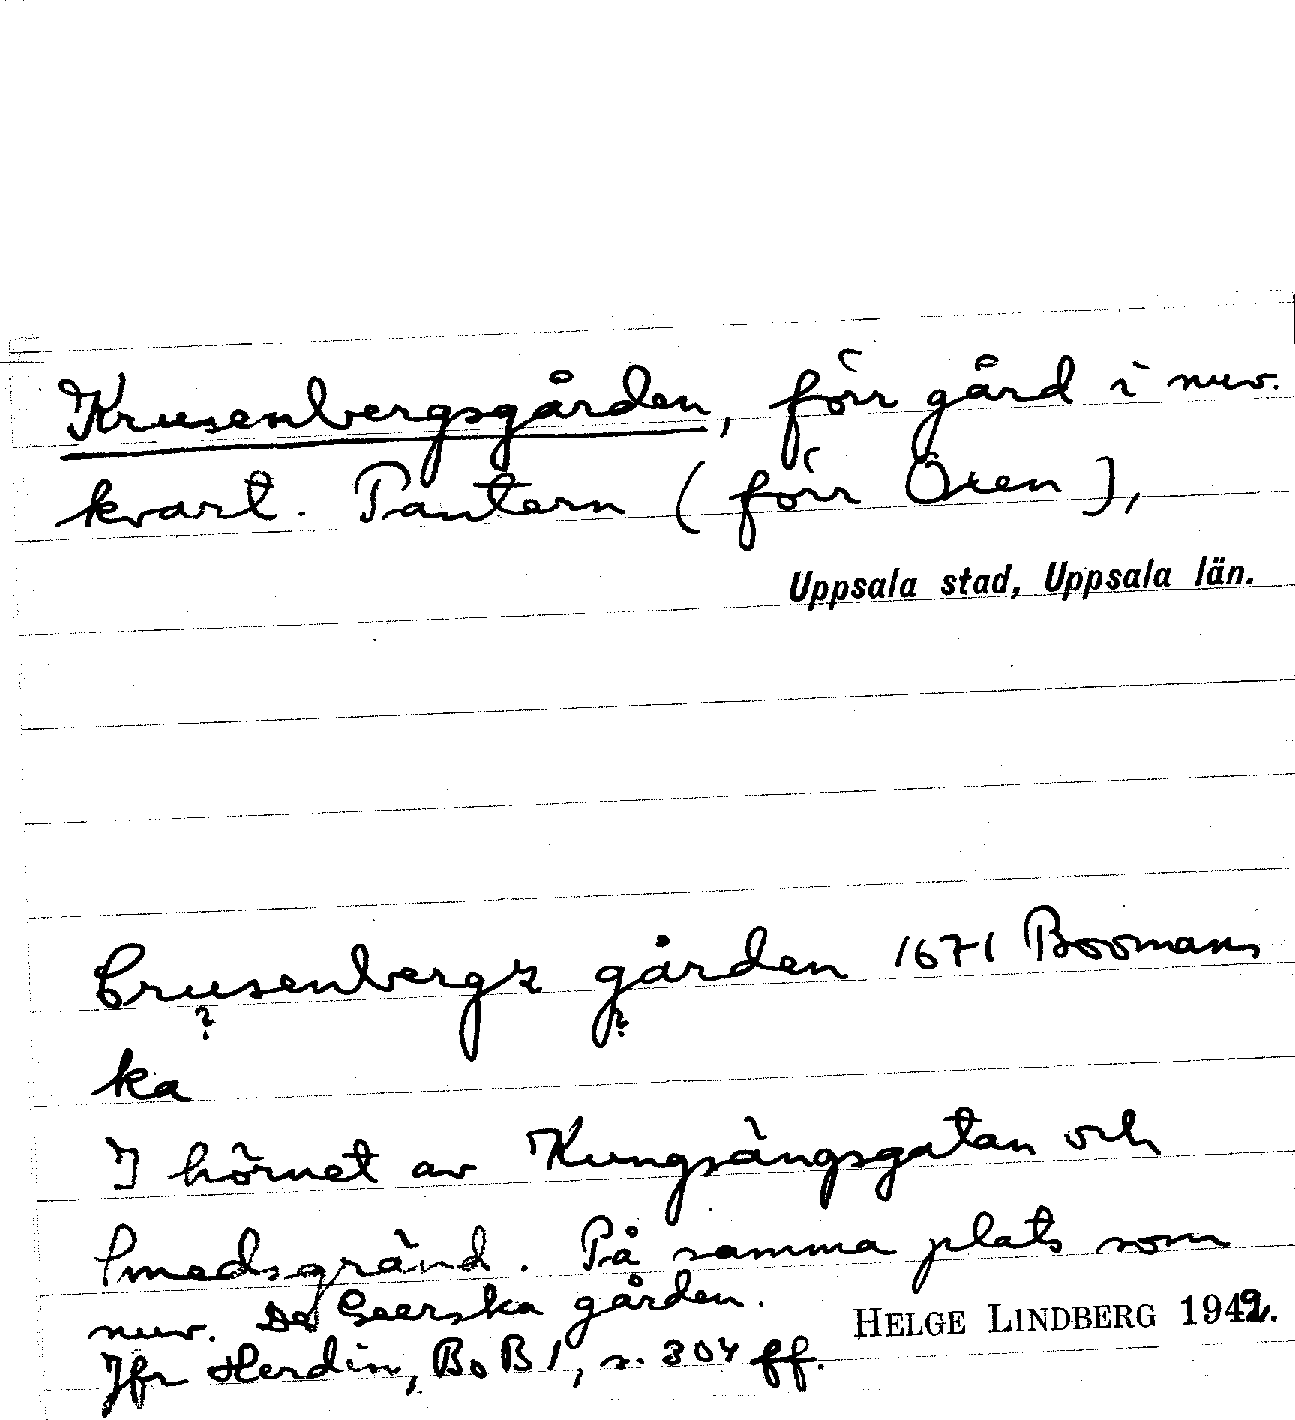 Krusenbergsgården, förr gård i nuv.
kvart. Pantern (förr Oxen),
Uppsala stad, Uppsala län.
Crusenbergz gården 1671 Boomans
? ?
ka
I hörnet av Kungsängsgatan och
Smedsgränd. På samma plats som
nuv. De Geerska gården.
HELGE LINDBERG 1949.
Jfr Herdin, BoB 1, s. 304 ff.